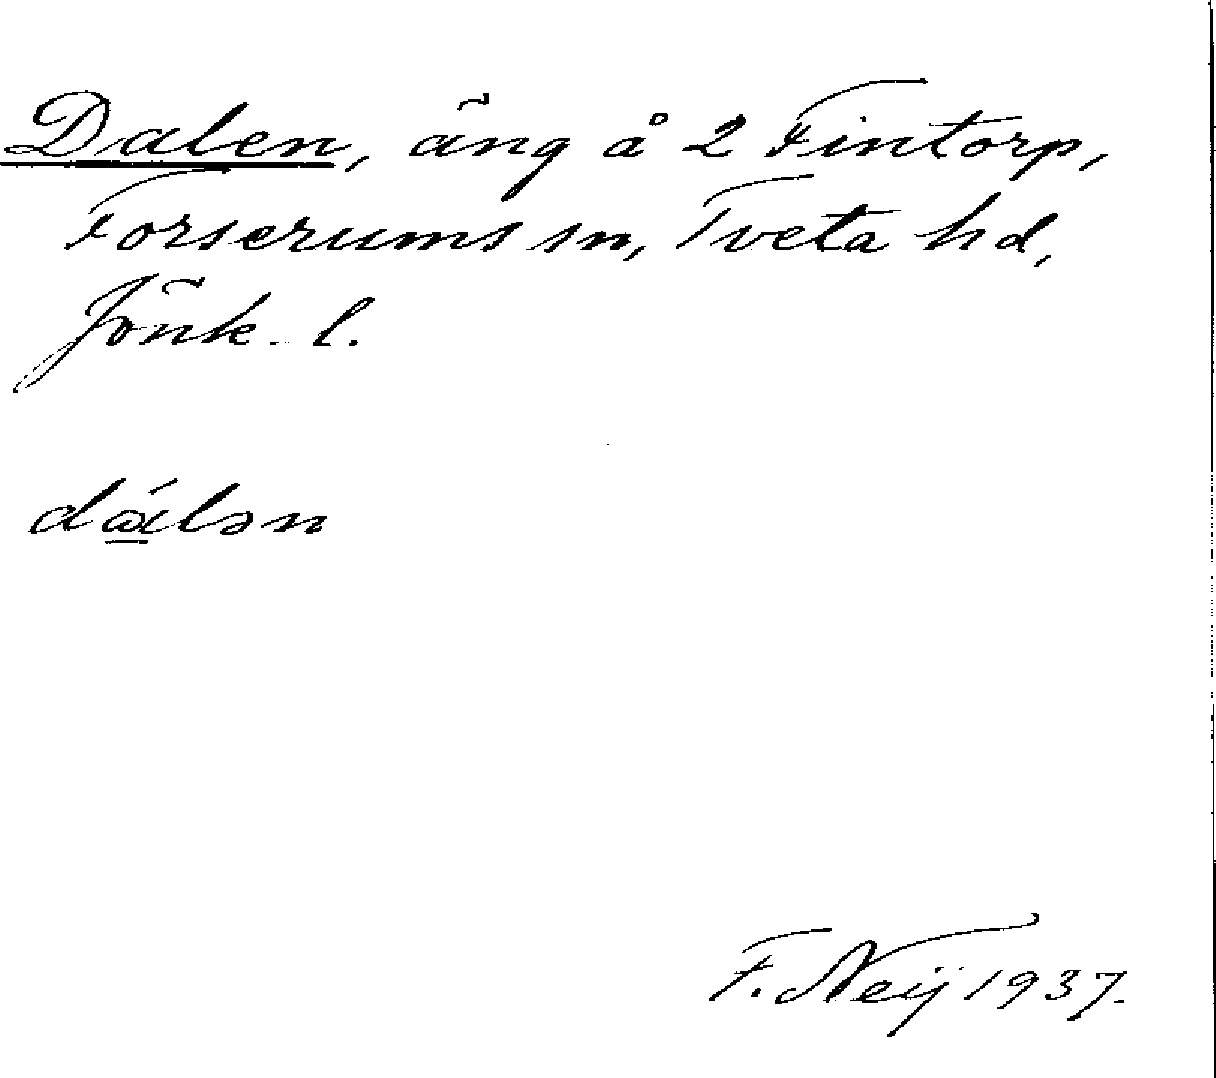 Dalen, äng å 2 Fintorp,
Forserums sn, Tveta hd,
Jönk. l.
dά̲lən
F. Neij 1937.